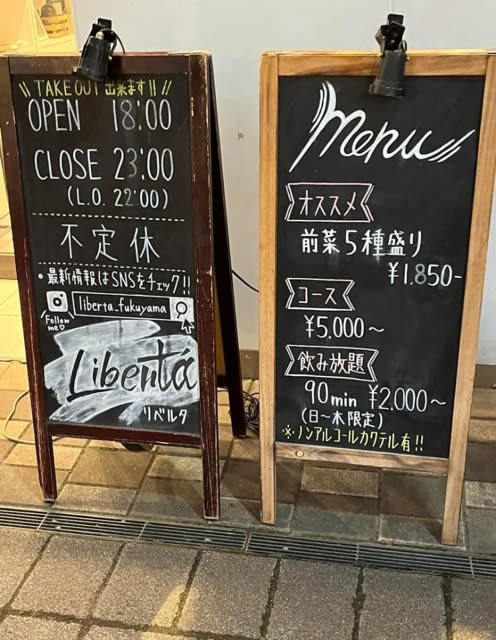 \\ TAKE OUT 出来ます!! //
OPEN 18:00
CLOSE 23:00
(L.O. 22:00)
不定休
・最新情報はSNSをチェック!!
liberta.fukuyama
Follow me♡
Libertá
リベルタ
Menu
オススメ
前菜5種盛り
¥1.850-
コース
¥5.000～
飲み放題
90min ¥2,000～
(日～木限定)
※ノンアルコールカクテル有!!